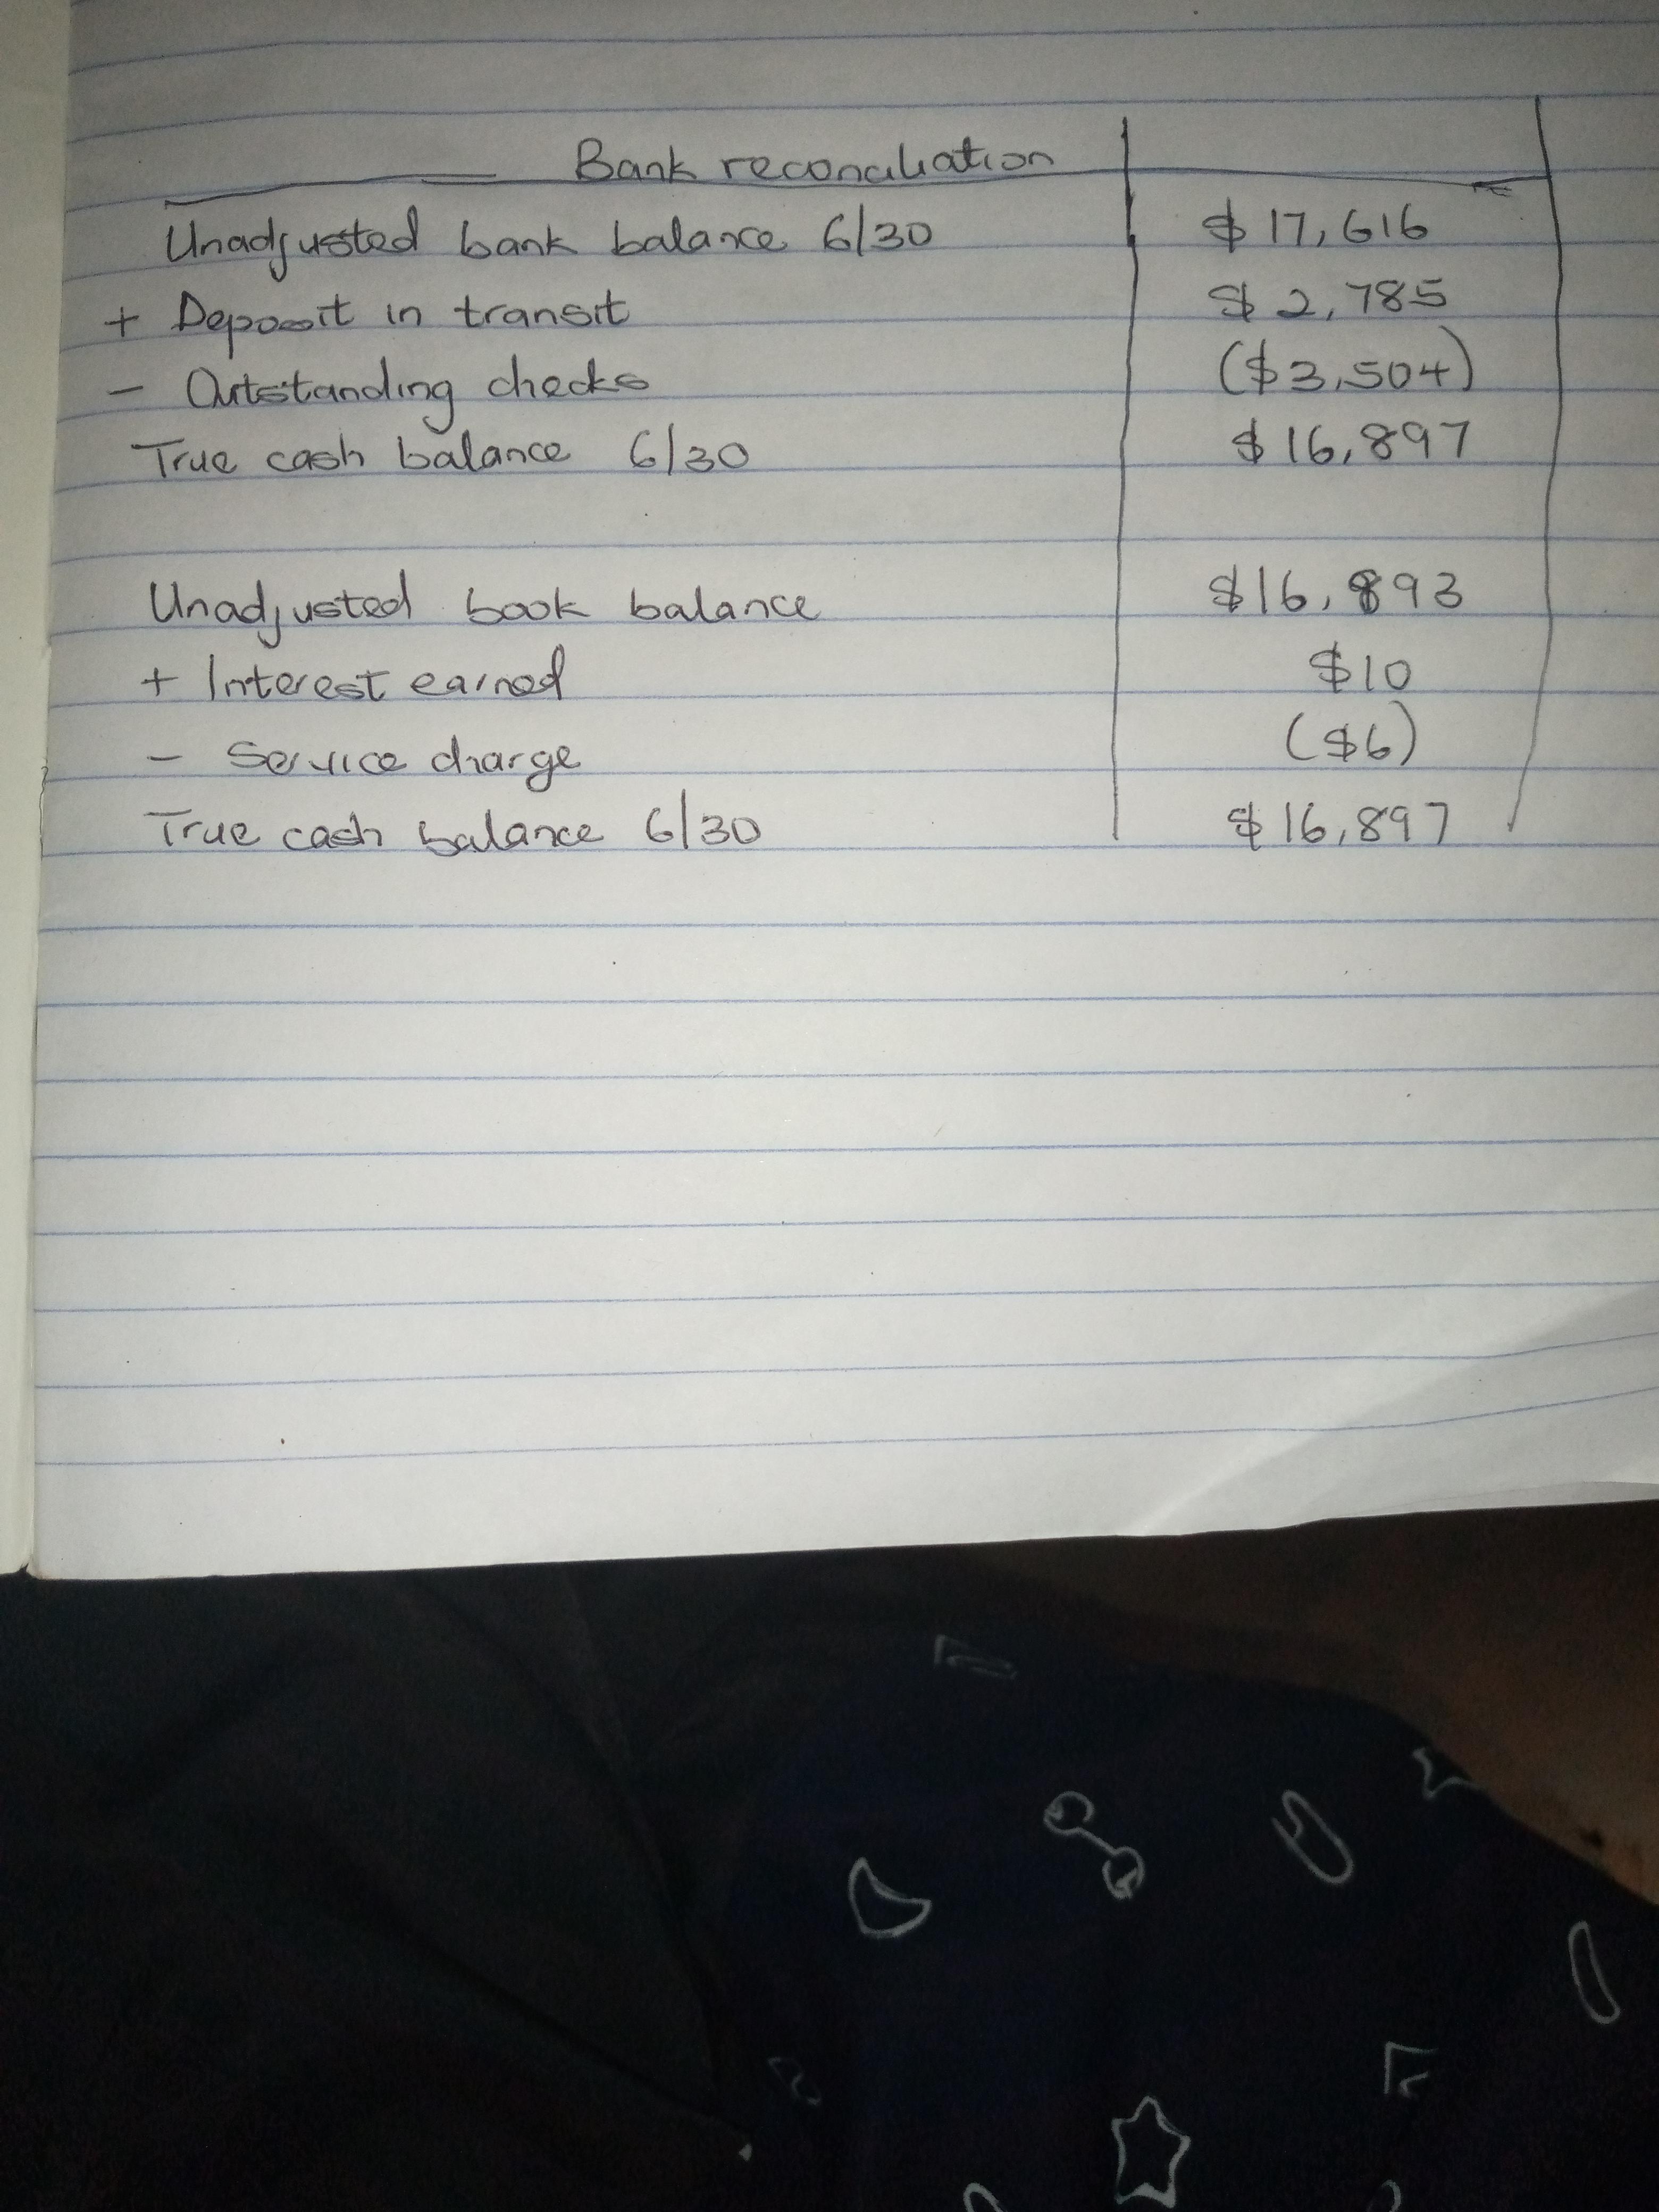 Bank reconciliation
Unadjusted bank balance 6/30 $17,616
+ Deposit in transit $2,785
- Outstanding checks ($3,504)
True cash balance 6/30 $16,897
Unadjusted book balance $16,893
+ Interest earned $10
- Service charge ($6)
True cash balance 6/30 $16,897